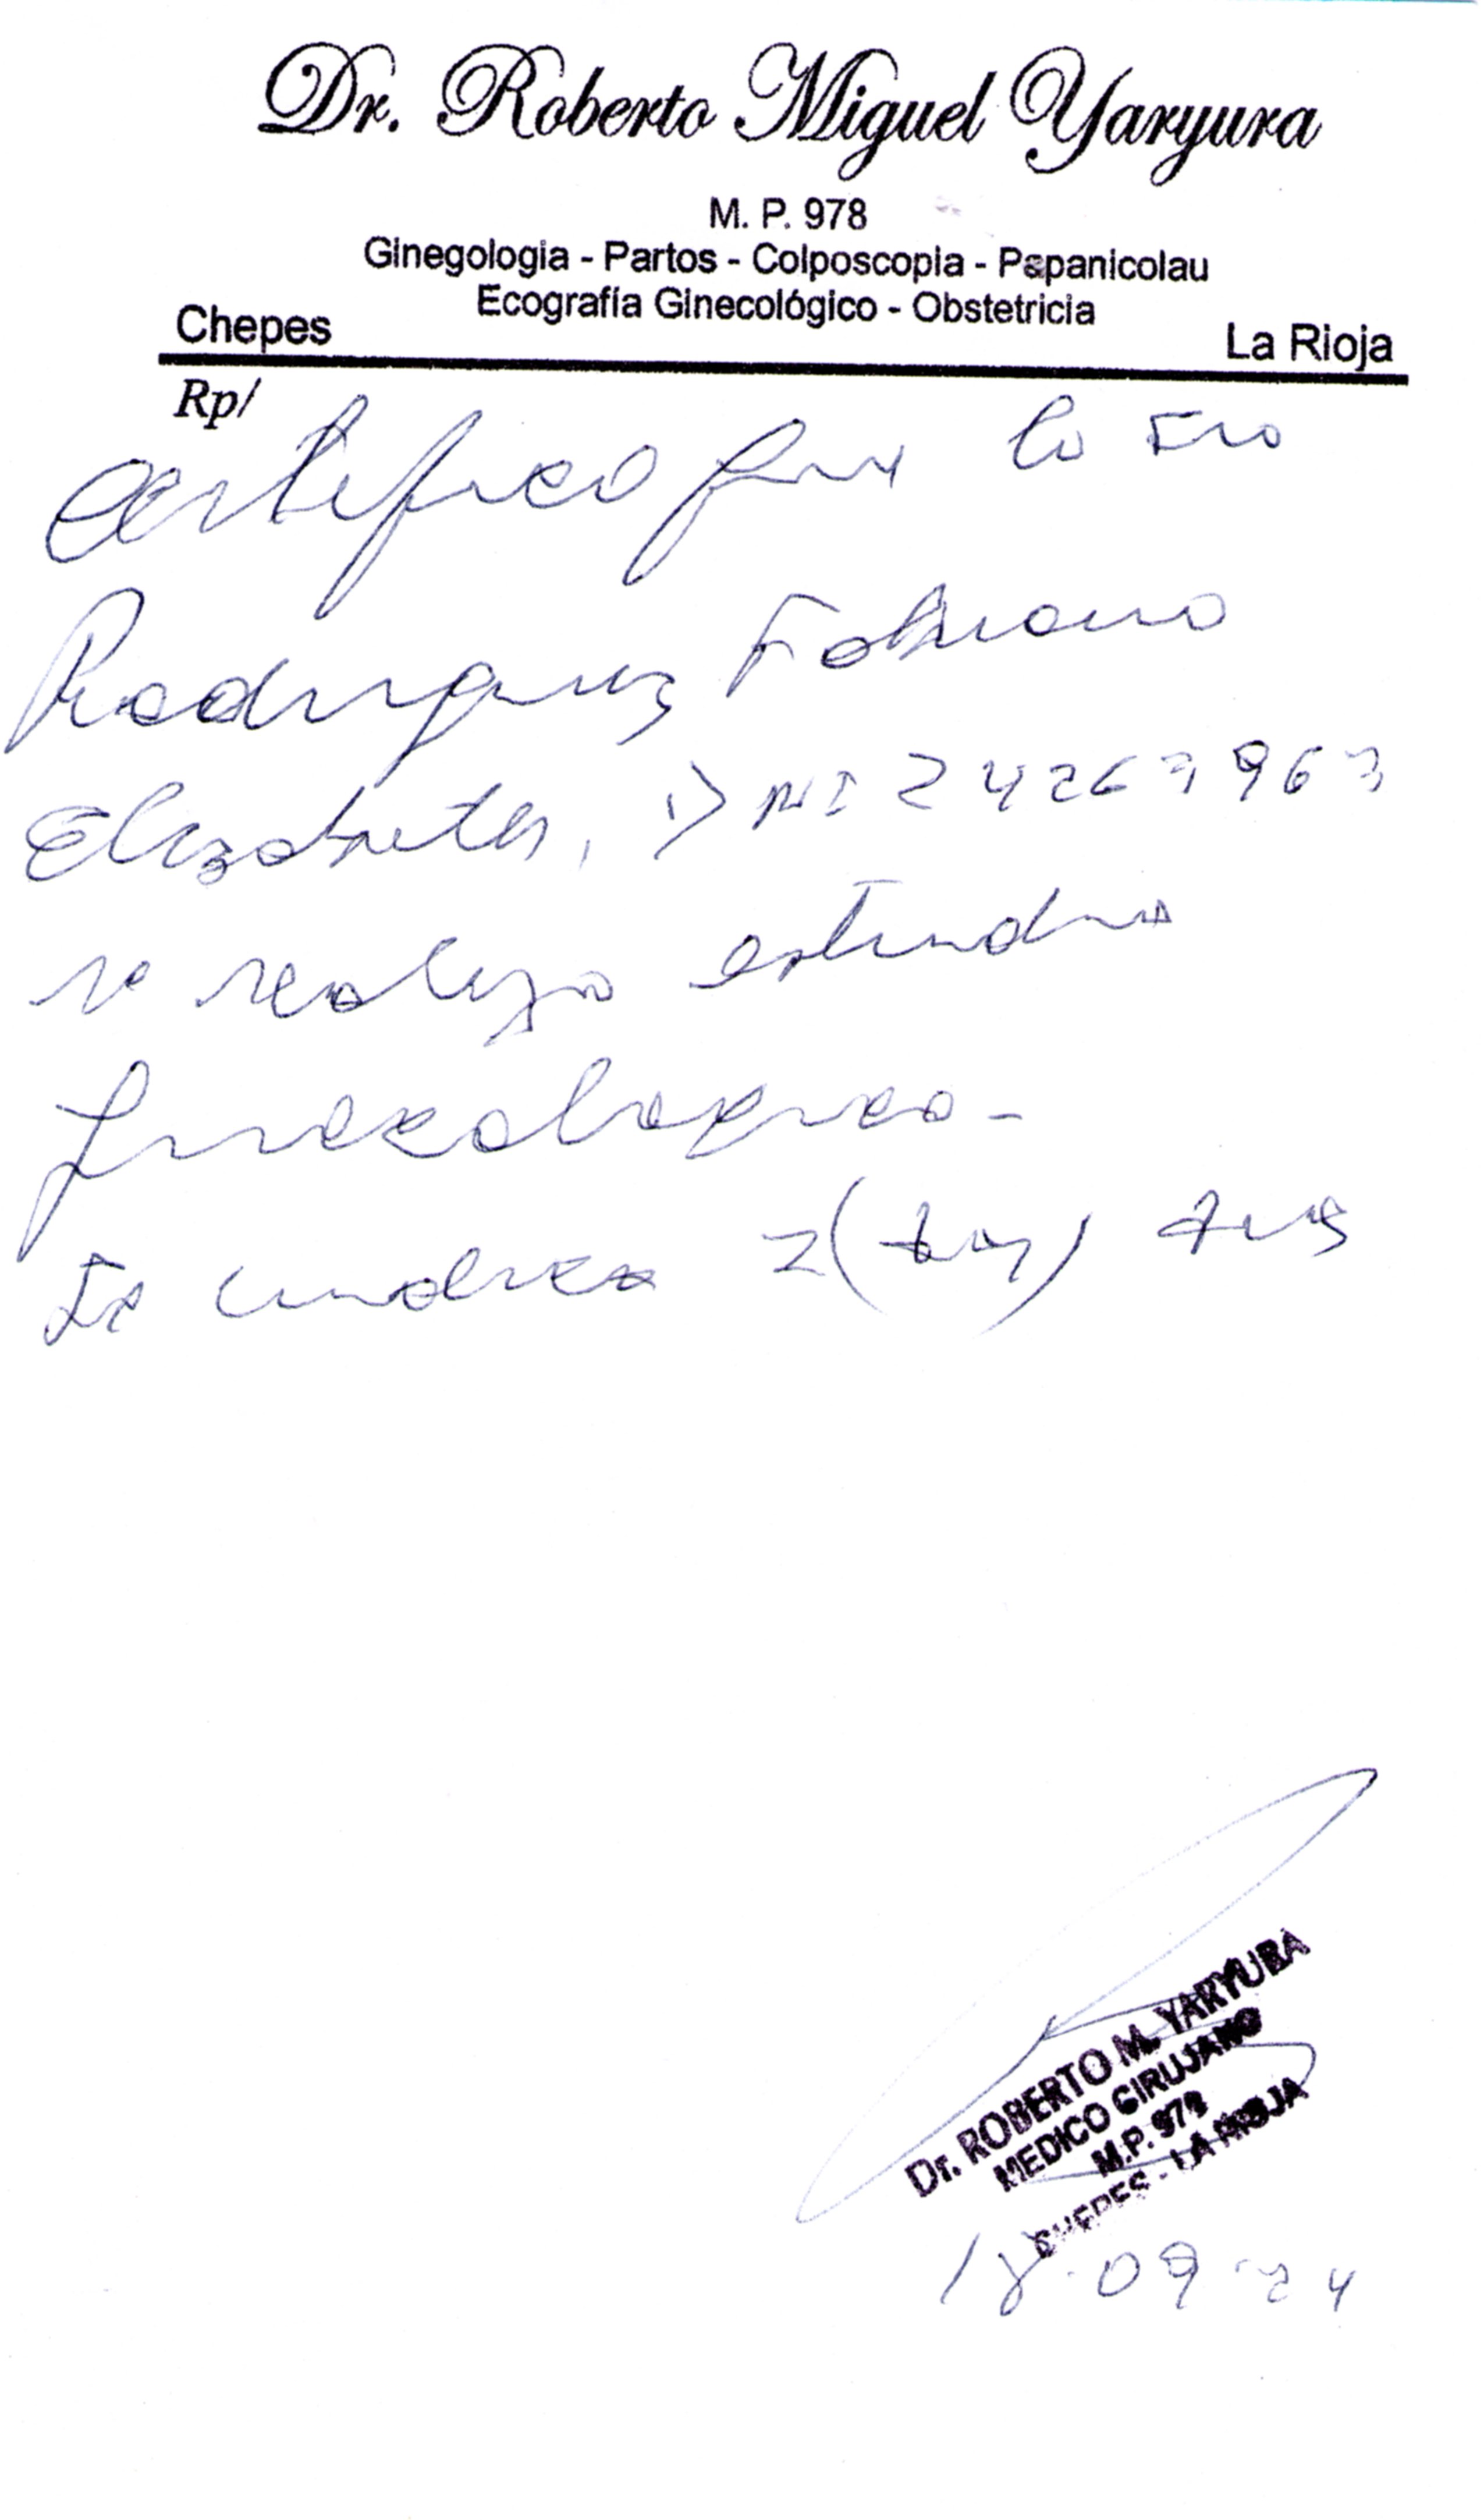 Dr. Roberto Miguel Yaryura
M. P. 978
Ginegologia - Partos - Colposcopia - Papanicolau
Ecografía Ginecológico - Obstetricia
Chepes
La Rioja
Rp/
Certifico que la
Rodriguez Fabiana
Elizabeth, DNI 24263963
se realizo estudios
ginecologico-
Se indica 2( )
Dr. ROBERTO M. YARYURA
MEDICO CIRUJANO
M.P. 978
CHEPES - LA RIOJA
18-09-24